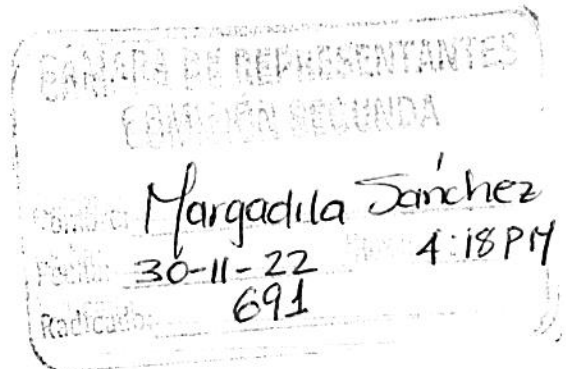 CÁMARA DE REPRESENTANTES
COMISIÓN SEGUNDA
Margadila Sánchez
Fecha: 30-11-22 4:18 PM
Radicado: 691